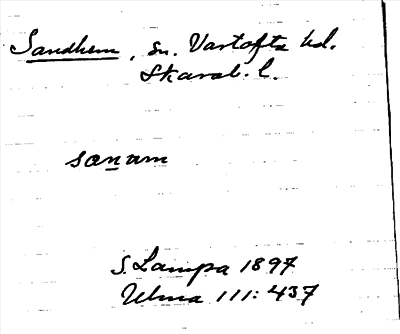 Sandhem, sn. Vartofta hd.
Skarab. l.
sanam
S. Lampa 1897
Ulma 111:437